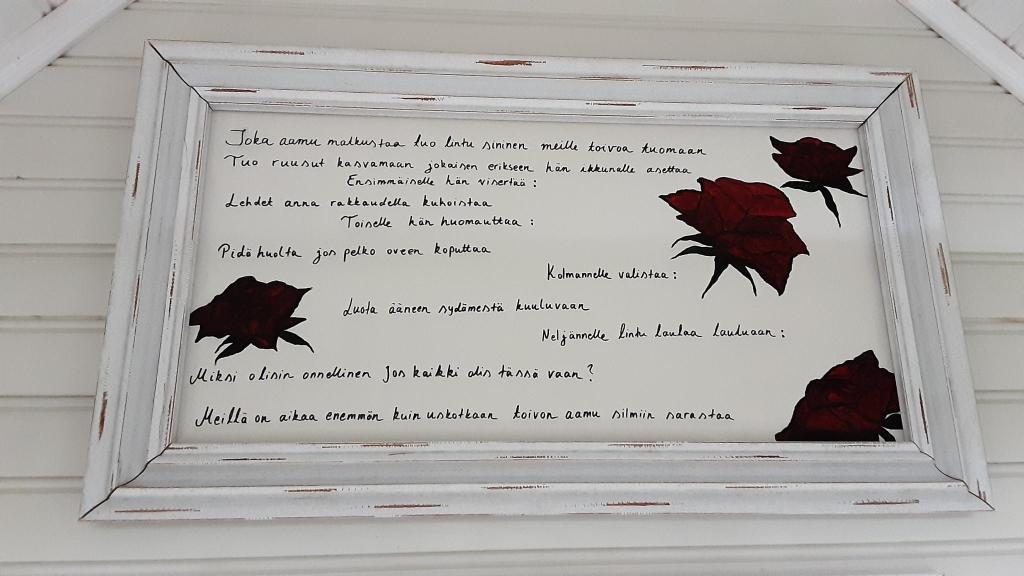 Joka aamu matkustaa luo lintu sininen meille toivoa tuomaan
Tuo ruusut kasvamaan jokaisen erikseen hän ikkunalle asettaa
Ensimmäiselle hän visertää:
Lehdet anna rakkaudella kukoistaa
Toiselle hän huomauttaa:
Pidä huolta jos pelko oveen koputtaa
Kolmannelle valistaa:
Luota ääneen sydämestä kuuluvaan
Neljännelle lintu laulaa lauluaan:
Miksi olisin onnellinen jos kaikki olis tässä vaan?
Meillä on aikaa enemmän kuin uskotkaan toivon aamu silmiin sarastaa